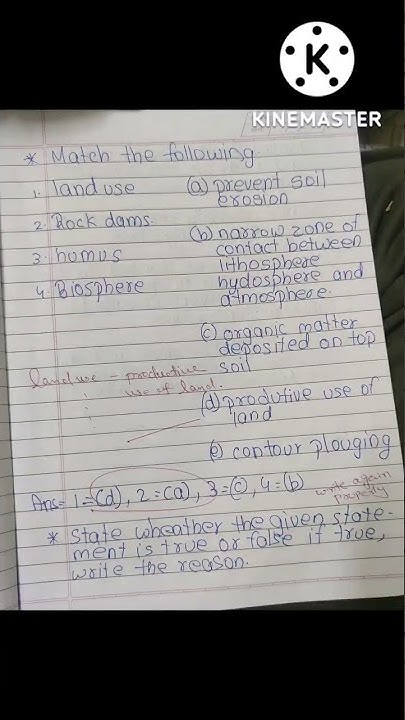 K
KINEMASTER
* Match the following
1. land use (a) prevent soil
erosion
2. Rock dams.
(b) narrow zone of
3. humus contact between
lithosphere
4. Biosphere hydosphere and
atmosphere.
(c) organic matter
deposited on top
land use - productive soil
use of land.
(d) produtive use of
land
(e) contour plouging
Ans= 1=(d), 2=(a), 3=(c), 4=(b)
write again
properly
* State wheather the given state-
ment is true or false if true,
write the reason.